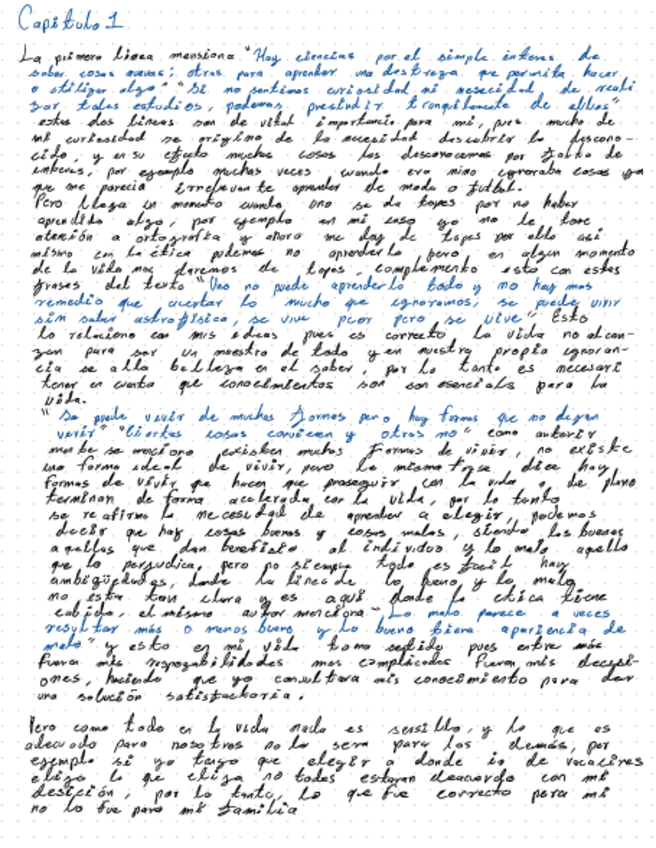 Capitulo 1
La primera linea mensiona "Hay ciencias por el simple interes de
saber cosas nuevas; otras para aprender una destreza que permita hacer
o utilizar algo" "Si no sentimos curiosidad ni nesecidad de reali
zar tales estudios, podemos prescindir tranquilamente de ellos"
estas dos lineas son de vital importancia para mi, pues mucho de
mi curiosidad se origino de la necesidad descubrir lo descono-
cido, y en su efecto muchas cosas las desconocemos por falta de
interes, por ejemplo muchas veces cuando era niño ignoraba cosas ya
que me parecia irrelevante aprender de moda o futbol.
Pero llega un momento cuando uno se da topes por no haber
aprendido algo, por ejemplo en mi caso yo no le tome
atención a ortografia y ahora me doy de topes por ello asi
mismo con la ética podemos no aprenderla pero en algun momento
de la vida nos daremos de topes, complemento esto con estas
frases del texto "Uno no puede aprenderlo todo y no hay mas
remedio que aceptar lo mucho que ignoramos; se puede vivir
sin saber astrofisica, se vive peor pero se vive" Esto
lo relaciono con mis ideas pues es correcto La vida no alcan-
zan para ser un maestro de todo y en nuestra propia ignoran-
cia se alla belleza en el saber, por lo tanto es necesari
tener en cuenta que conocimientos son son esencials para la
vida.
"Se puede vivir de muchas formas pero hay formas que no dejan
vivir" "Ciertas cosas convienen y otras no" como autorir
mente se menciona existen muchas formas de vivir, no existe
una forma ideal de vivir, pero la misma frase dice hay
formas de vivir que hacen que proseguir con la vida o de plano
terminan de forma acelerada con la vida, por lo tanto
se reafirma la necesidad de aprender a elegir, podemos
decir que hay cosas buenas y cosas malas, siendo las buenas
aquellas que dan beneficio al individuo y lo malo aquello
que lo perjudica, pero no siempre todo es facil hay
ambigüedades, donde la linea de lo bueno y lo malo
no esta tan clara y es aquí donde la etica tiene
cabida, el mismo autor menciona "Lo malo parece a veces
resultar más o menos bueno y lo bueno tiene apariencia de
malo" y esto en mi vida toma sentido pues entre más
fueran mis responsabilidades mas complicadas fueran mis decisi-
ones, haciendo que yo consultara mis conocimiento para dar
una solución satisfactoria.
Pero como todo en la vida nada es sensillo, y lo que es
adecuado para nosotros no lo sera para los demás, por
ejemplo si yo tengo que elegir a donde ir de vacaciones
elija lo que elija no todos estaran deacuerdo con mi
desición, por lo tanto, lo que fue correcto para mi
no lo fue para mi familia